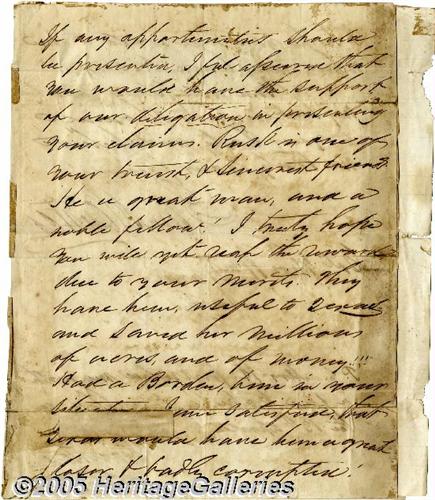 If any opportunities should
be presented, I feel assured that
you would have the support
of our diligation in presenting
your claims. Rusk is one of
your truest, & sincerest friends
He is a great man, and a
noble fellow! I truly hope
you will yet reap the reward
due to your merits. They
have been, useful to Texas
and saved her millions
of acres, and of money!!!
Had a Borden, been in your
situation I am satisfied, that
Texas would have been a great
loser & badly corrupted!
©2005 HeritageGalleries